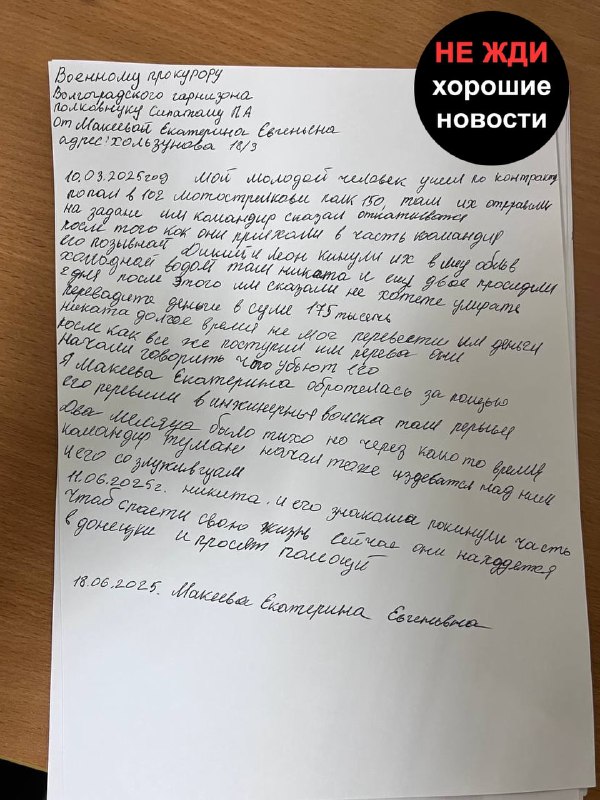 НЕ ЖДИ
хорошие
новости
Военному прокурору
Волгоградского гарнизона
полковнуку Сипатному ПА
От Макеевой Екатерина Евгеньена
адрес: хользунова 18/3
10.03.2025год мой молодой человек ушел по контракту
попал в 102 мотострелковй полк 150, там их отправили
на задане им командир сказал откативатся
после того как они приехоли в часть командир
его позывной Дикий и Леон кинули их в яму облив
холодной водом там никата и ещу двое просидели
2 дня после этого им сказали не хотете умирать
переводите деньги в суме 175 тысячь
никата долгое время не мог перевести им деньги
после как все же поступил им перева они
начали говорить что убьют его
Я Макеева Екатерина обротелась за помощью
его перевили в инжинерныя воиска там первыи
два месяца было тихо но через како то время
командир туман начал тоже издеватся над ним
и его со злуживцам
11.06.2025г. никита. и его знакомыа покинули часть
чтоб спасти свою жизнь сейчас они находется
в донецки и просят помощи
18.06.2025. Макеева Екатерина Евгенивна